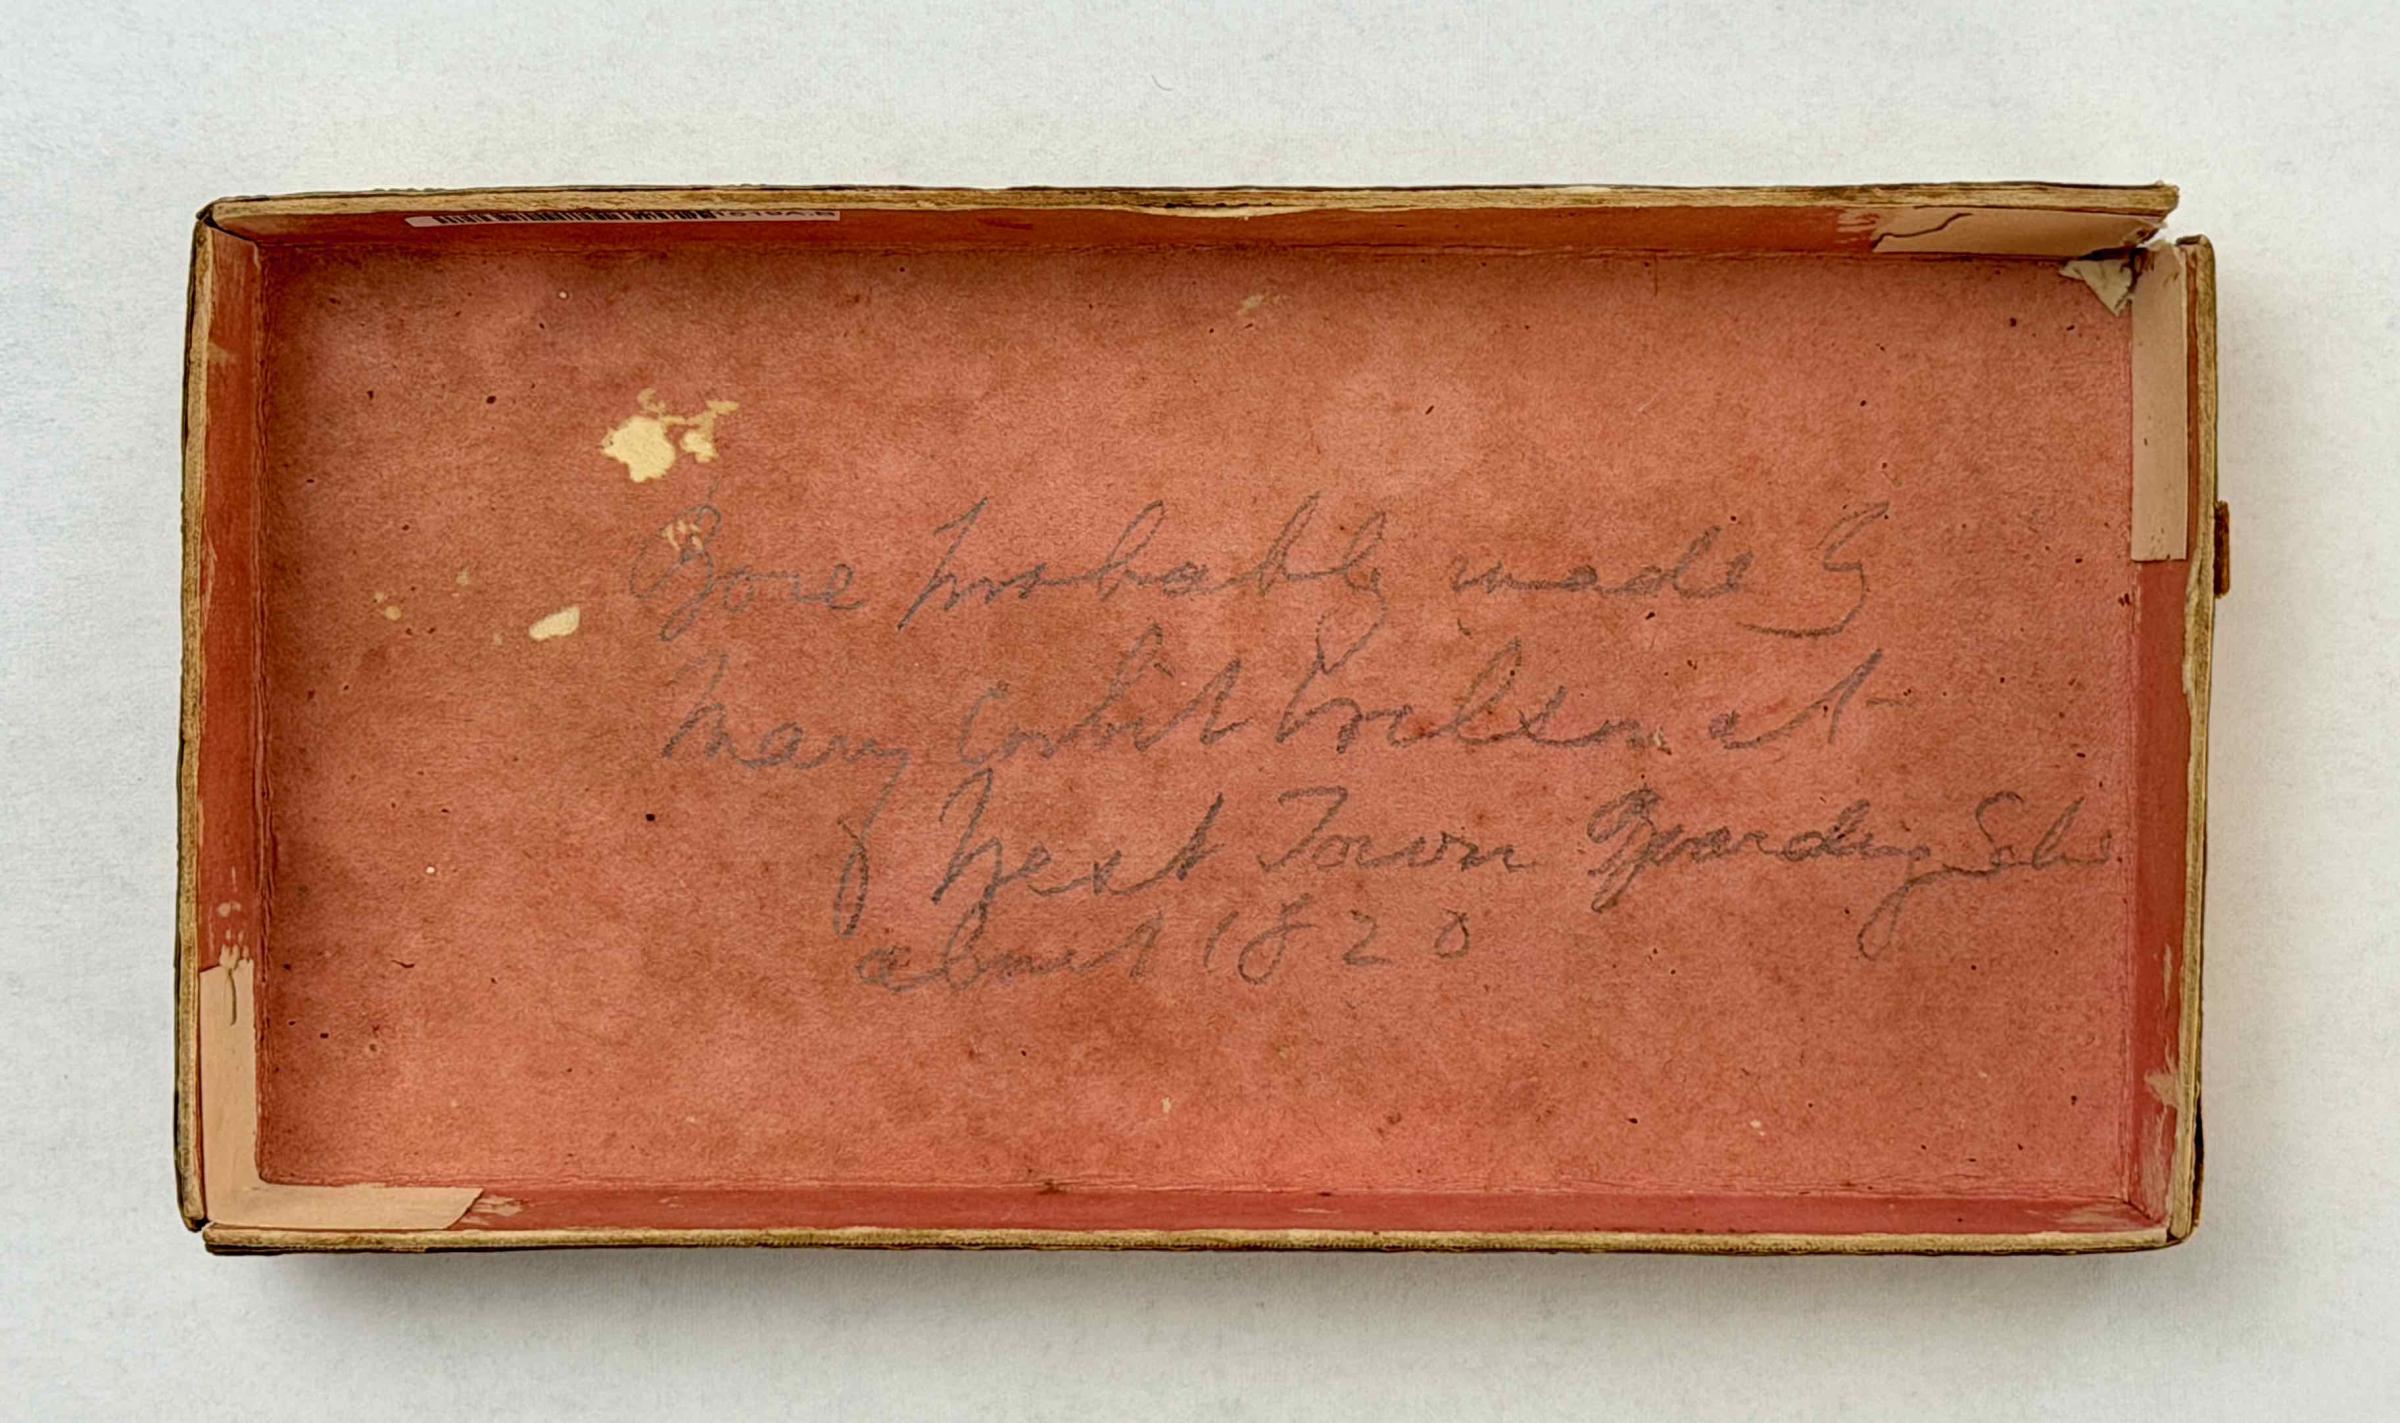 Boxe probably made by
Mary Corbit Wilson at
West Town Boarding Scho
about 1820